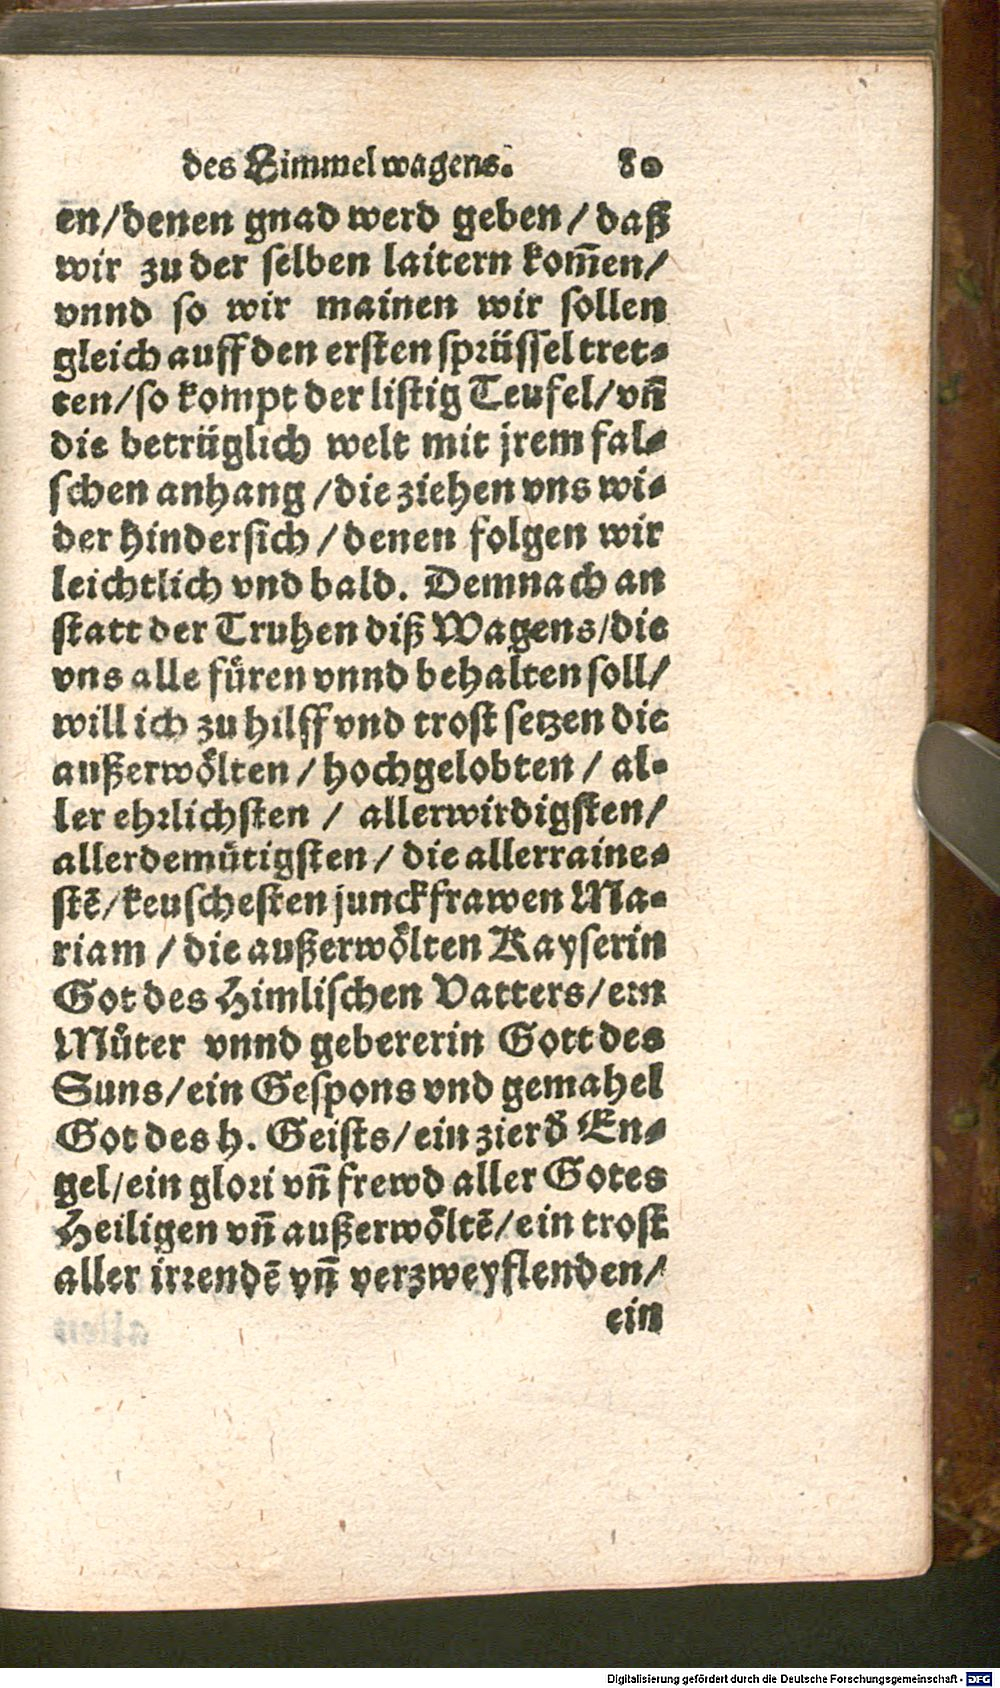 des Himmelwagens. 80
en/denen gnad werd geben/daß
wir zu der selben laitern kom̄en/
vnnd so wir mainen wir sollen
gleich auff den ersten sprüssel tret⸗
ten/so kompt der listig Teufel/vn̄
die betrüglich welt mit jrem fal⸗
schen anhang/die ziehen vns wi⸗
der hindersich/denen folgen wir
leichtlich vnd bald. Demnach an
statt der Truhen diß Wagens/die
vns alle fuͤren vnnd behalten soll/
will ich zu hilff vnd trost setzen die
außerwoͤlten/hochgelobten/al⸗
ler ehrlichsten/allerwirdigsten/
allerdemuͤtigsten/die allerraine⸗
stē/keuschesten junckfrawen Ma⸗
riam/die außerwoͤlten Kayserin
Got des Himlischen Vatters/ein
Muͦter vnnd gebererin Gott des
Suns/ein Gespons vnd gemahel
Got des h. Geists/ein zierd̕ En⸗
gel/ein glori vn̄ frewd aller Gotes
Heiligen vn̄ außerwoͤltē/ein trost
aller irrendē vn̄ verzweyflenden/
ein
Digitalisierung gefördert durch die Deutsche Forschungsgemeinschaft - DFG